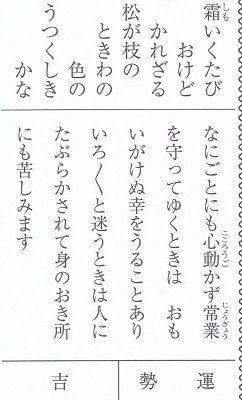 霜いくたび
おけど
かれざる
松が枝の
ときわの
色の
うつくしき
かな
なにごとにも心動かず常業
を守ってゆくときは　おも
いがけぬ幸をうることあり
いろ〱と迷うときは人に
たぶらかされて身のおき所
にも苦しみます
運勢　吉